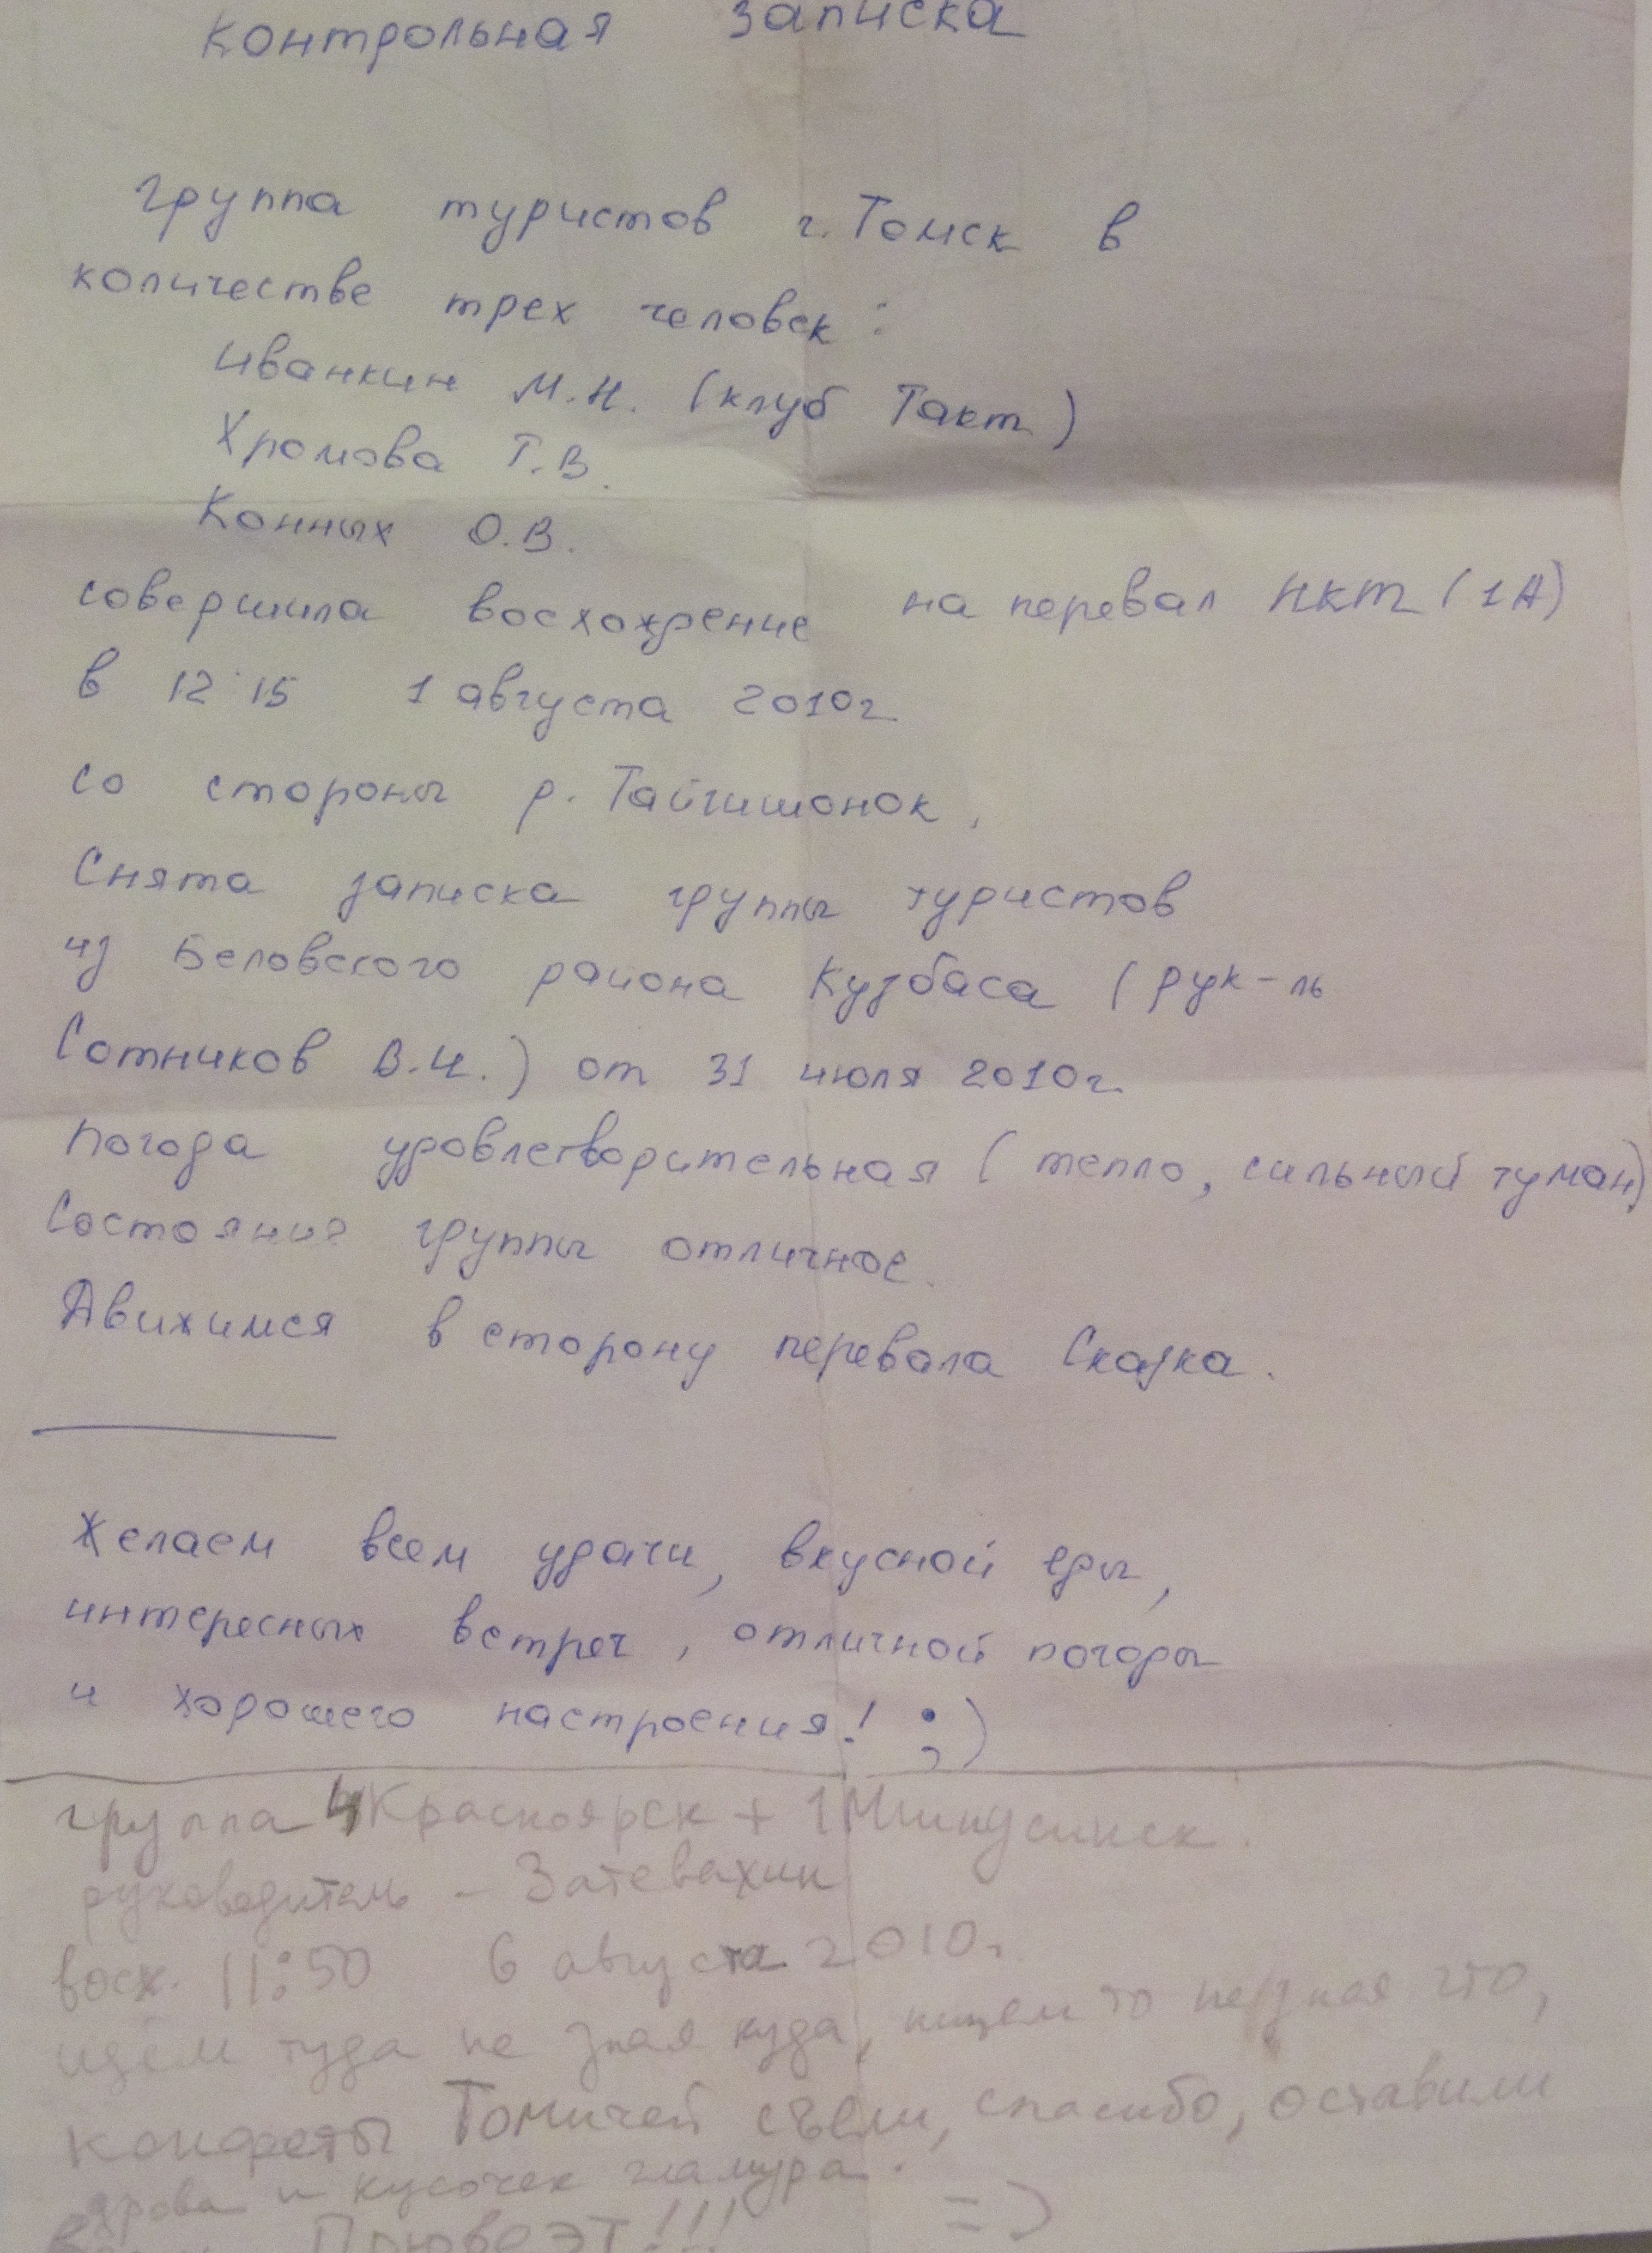 Контрольная записка
Группа туристов г. Томск в
количестве трех человек:
Иванкин М.Н. (клуб Такт)
Хромова Т.В.
Конных О.В.
совершила восхождение на перевал НКТ (1А)
в 12:15 1 августа 2010г.
со стороны р. Тайгишонок,
Снята записка группы туристов
из Беловского района Кузбаса (рук-ль
Сотников В.И.) от 31 июля 2010г.
Погода удовлетворительная (тепло, сильный туман)
Состояние группы отличное.
Движимся в сторону перевала Сказка.
Желаем всем удачи, вкусной еды,
интересных встреч, отличной погоды
и хорошего настроения! ;)
группа 4 Красноярск + 1 Минусинск.
руководитель – Затевахин
восх. 11:50 6 августа 2010г.
идём туда не зная куда, ищем то не зная что,
конфеты Томичей съели, спасибо, оставили
дрова и кусочек гламура. =)